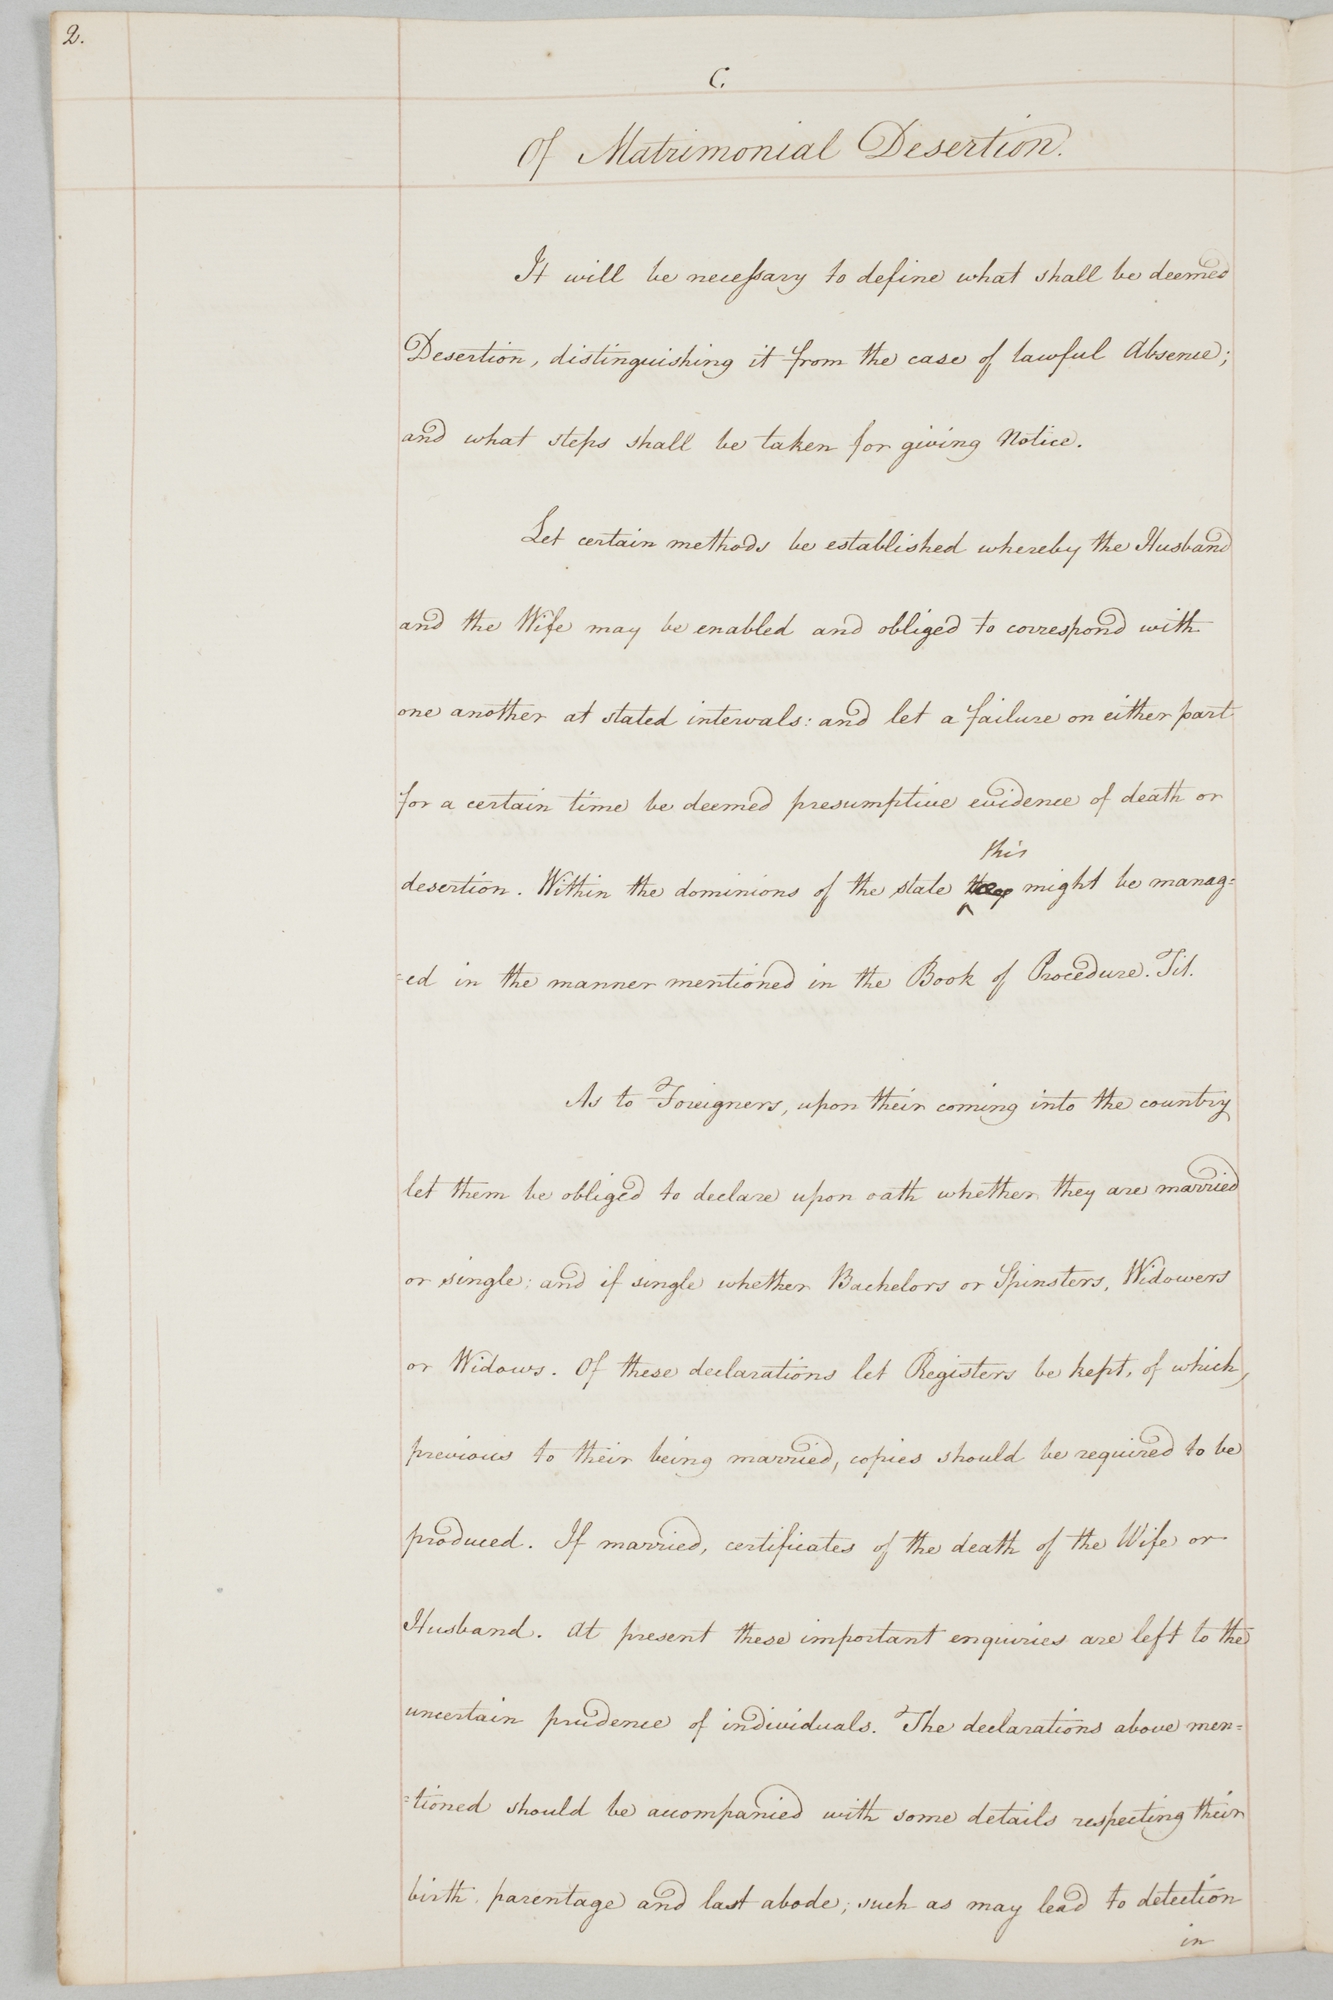 2.
C.
Of Matrimonial Desertion.
It will be necessary to define what shall be deemed
Desertion, distinguishing it from the case of lawful Absence;
and what steps shall be taken for giving Notice.
Let certain methods be established whereby the Husband
and the Wife may be enabled and obliged to correspond with
one another at stated intervals: and let a failure on either part
for a certain time be deemed presumptive evidence of death or
this
desertion. Within the dominions of the state ^ might be manag=
=ed in the manner mentioned in the Book of Procedure. Tit.
As to Foreigners, upon their coming into the country
let them be obliged to declare upon oath whether they are married
or single; and if single whether Bachelors or Spinsters, Widowers
or Widows. Of these declarations let Registers be kept, of which,
previous to their being married, copies should be required to be
produced. If married, certificates of the death of the Wife or
Husband. At present these important enquiries are left to the
uncertain prudence of individuals. The declarations above men=
=tioned should be accompanied with some details respecting their
birth, parentage and last abode; such as may lead to detection
in